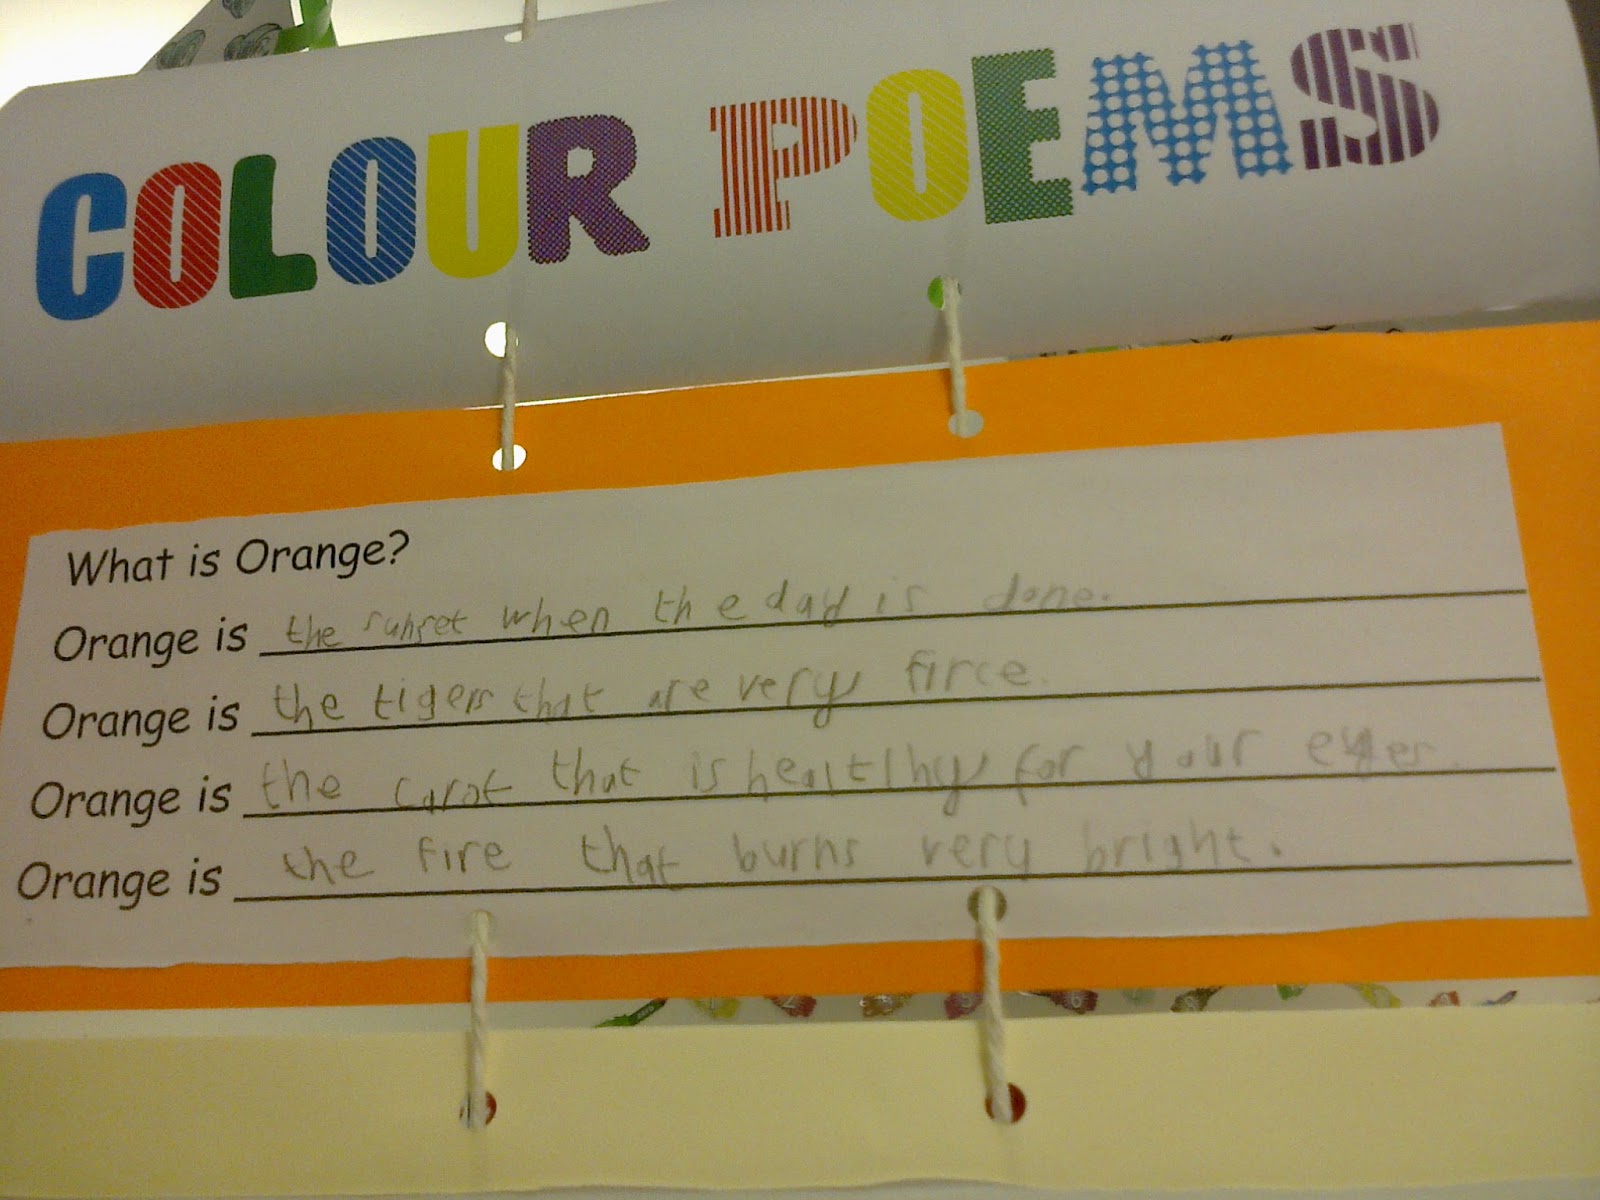 COLOUR POEMS
What is Orange?
Orange is the sunset when the day is done.
Orange is the tigers that are very firce.
Orange is the carot that is healtlhy for your eyes.
Orange is the fire that burns very bright.